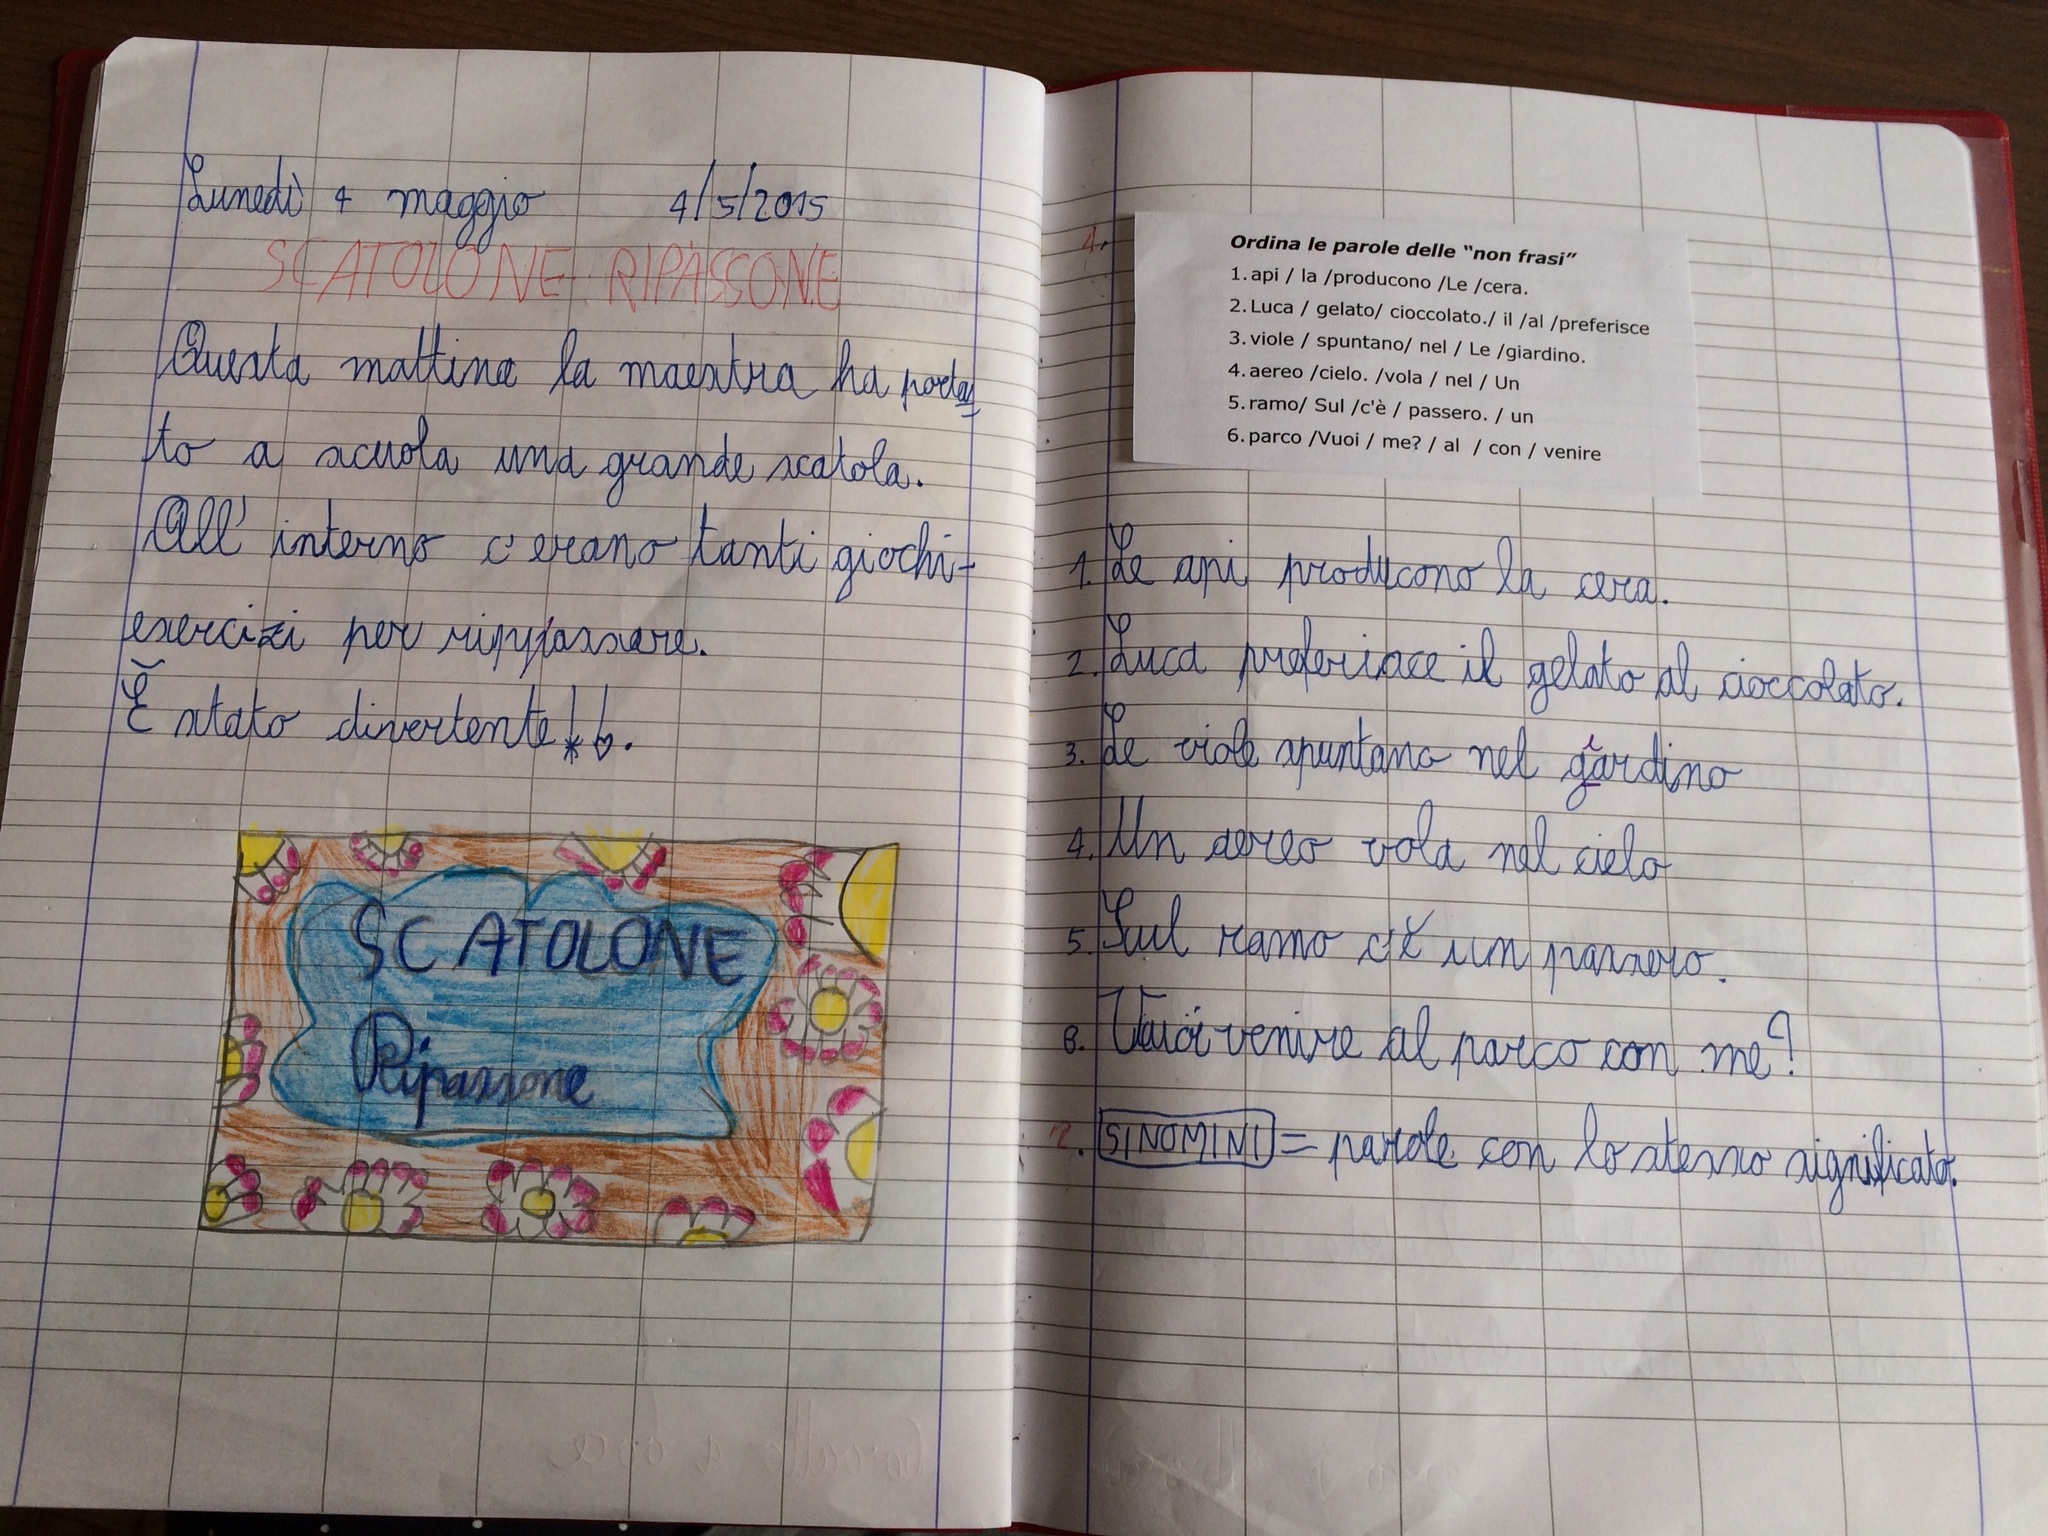 Lunedì 4 maggio 4/5/2015
SCATOLONE RIPASSONE
Questa mattina la maestra ha porta
to a scuola una grande scatola.
All'interno c'erano tanti giochi-
esercizi per rippassare.
È stato divertente!!.
SCATOLONE
Ripassone
1.
Ordina le parole delle "non frasi"
1. api / la /producono /Le /cera.
2. Luca / gelato/ cioccolato./ il /al /preferisce
3. viole / spuntano/ nel / Le /giardino.
4. aereo /cielo. /vola / nel / Un
5. ramo/ Sul /c'è / passero. / un
6. parco /Vuoi / me? / al / con / venire
1. Le api producono la cera.
2. Luca preferisce il gelato al cioccolato.
3. Le viole spuntano nel giardino
4. Un aereo vola nel cielo
5. Sul ramo c'è un passero.
6. Vuoi venire al parco con me?
2. SINOMINI = parole con lo stesso significato.